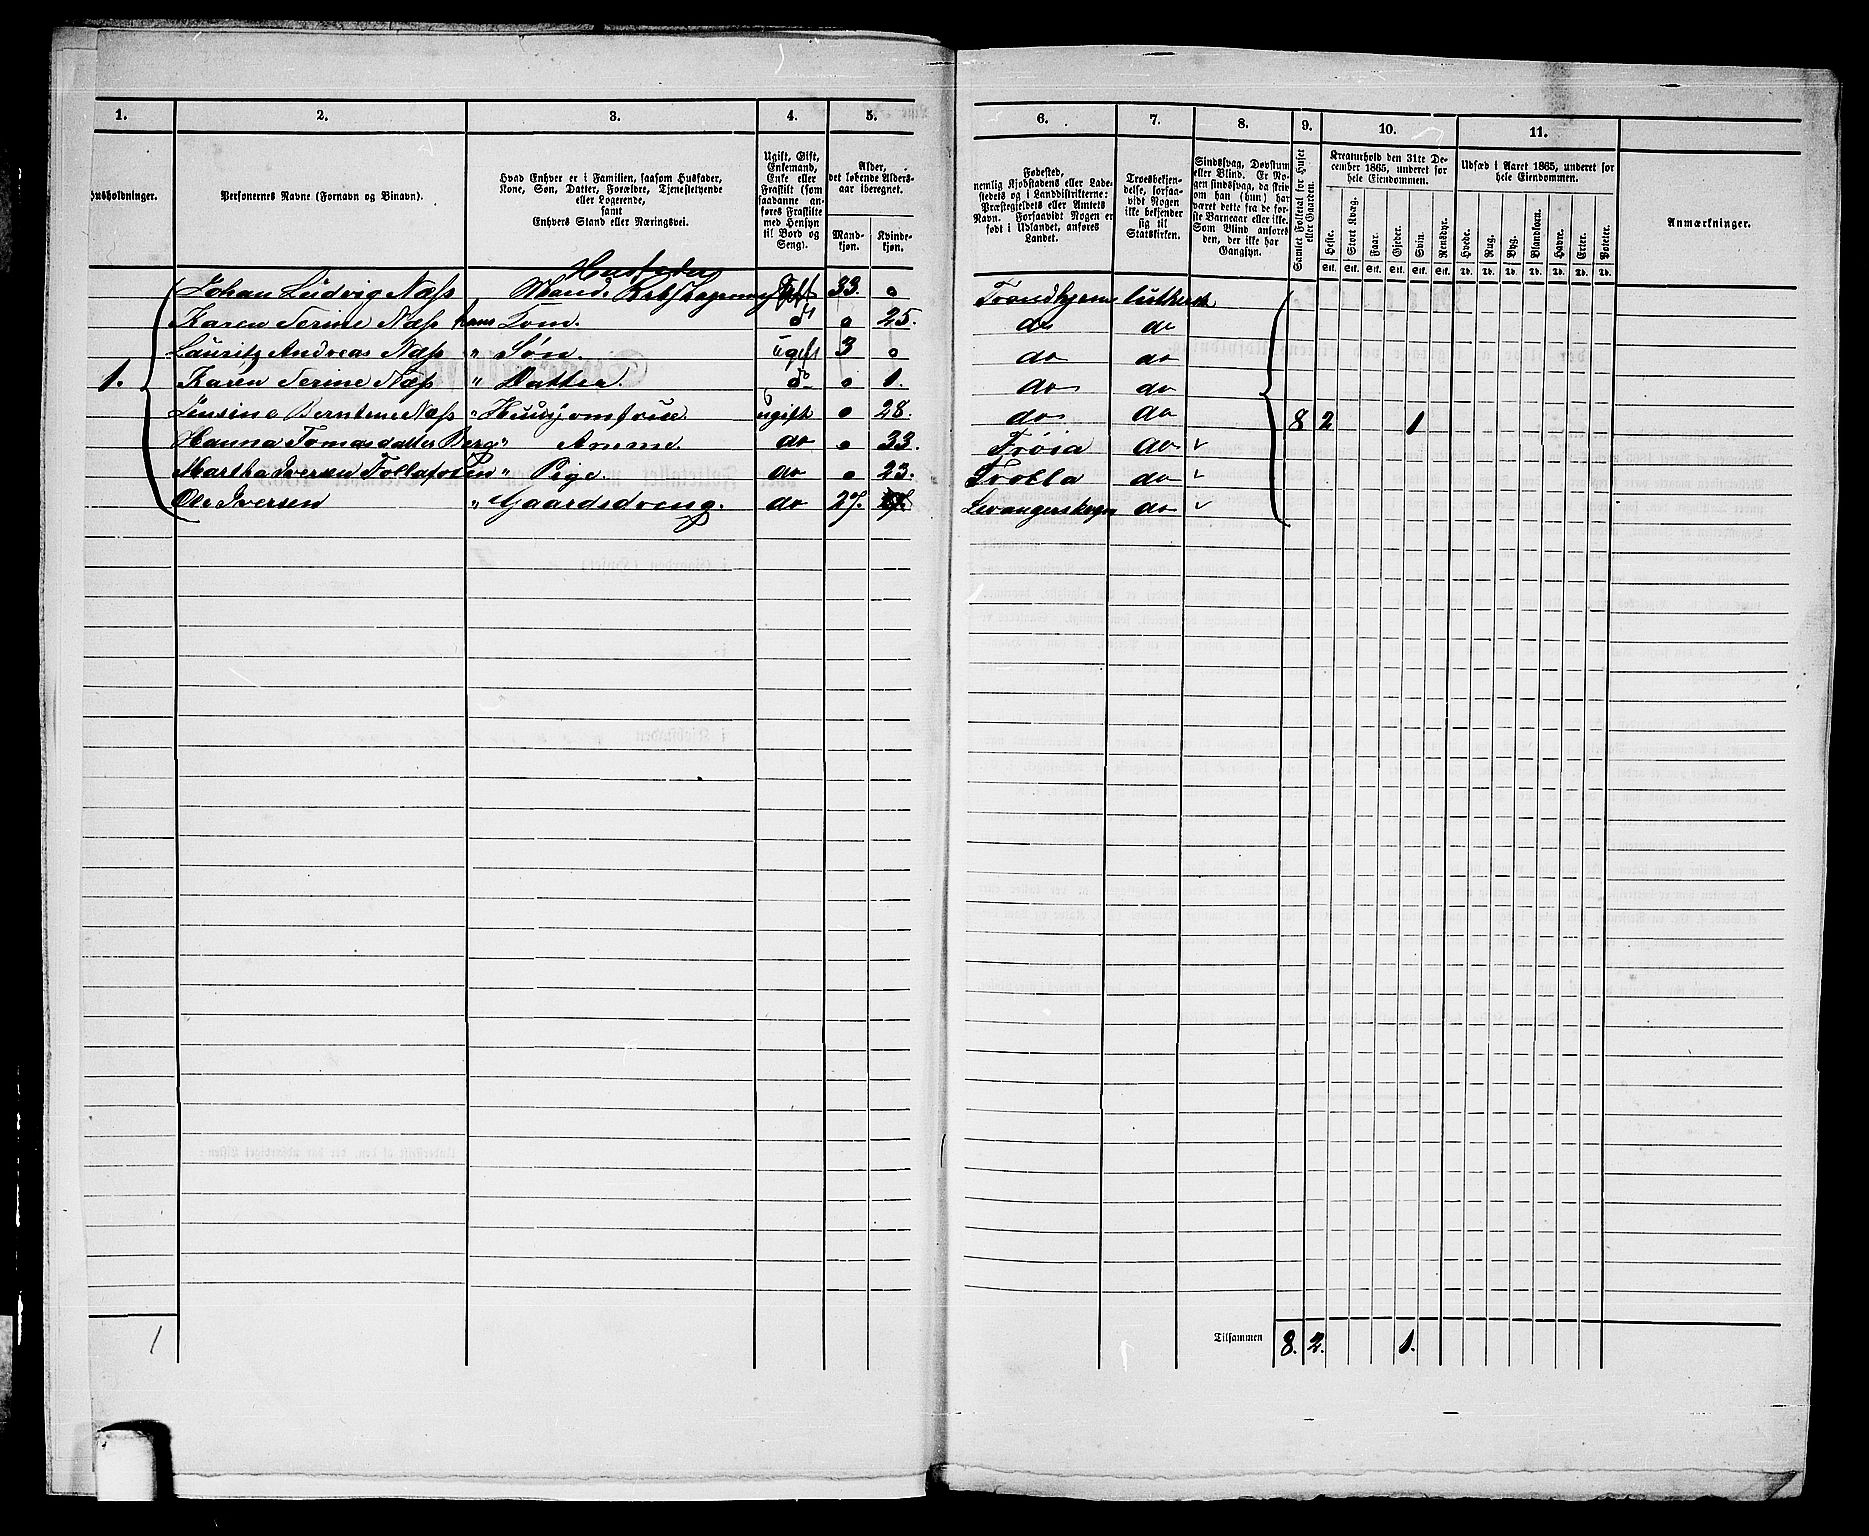 1. 2. 3. 4. 5. 6. 7. 8. 9. 10. 11.
Husholdninger.
Personernes Navne (Fornavn og Binavn).
Hvad Enhver er i Familien, saasom Husfader, Kone, Søn, Datter, Forældre, Tjenestetyende eller Logerende, samt Enhvers Stand eller Næringsvei.
Ugift, Gift, Enkemand, Enke eller Fraskilt (som saadanne anføres Fraskilte med Hensyn til Bord og Seng).
Alder, det løbende Aldersaar iberegnet.
Mandkjøn. Kvindekjøn.
Fødested, nemlig Kjøbstadens eller Ladestedets og i Landdistrikterne: Præstegjeldets eller Amtets Navn. Forsaavidt Nogen er født i Udlandet, anføres Landet.
Troesbekjendelse, forsaavidt Nogen ikke bekjender sig til Statskirken.
Sindssvag, Døvstum eller Blind. Er Nogen sindssvag, da skrives om han (hun) har været dette fra de første Barneaar eller ikke. Som Blind anføres den, der ikke har Gangsyn.
Samlet Folketal for Huset eller Gaarden.
Kreaturhold den 31te December 1865, underet for hele Eiendommen.
Heste. Stort Kvæg. Faar. Gjeder. Svin. Rensdyr.
Stk. Stk. Stk. Stk. Stk. Stk.
Udsæd i Aaret 1865, underet for hele Eiendommen.
Hvede. Rug. Byg. Blandkorn. Havre. Erter. Poteter.
Td. Td. Td. Td. Td. Td. Td.
Anmærkninger.
Husfader
Johan Ludvig Næss Mand. Gift 33. 0 Trondhjem luthersk
Karen Serine Næss hans Kone. do 0 25. do do
Lauritz Andreas Næss " Søn. ugift 3 0 do do
1. Karen Serine Næss " Datter. do 0 1. do do
Berntine Næss " Huusjomfrue. ugift 0 28. do do 8 2 1
Hanna Tomasdatter Berg " Amme. do 0 33. Frøia do
Martha Iversen " Pige. do 0 23. do
Ole Iversen " Gaardsdreng. do 27. do
Tilsammen 8. 2. 1.
1